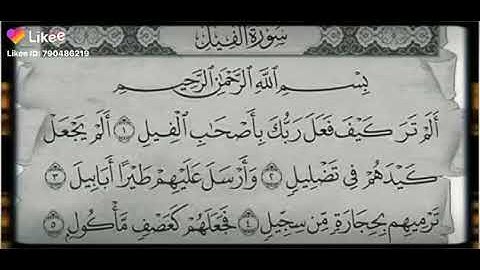 Likee
Likee ID: 790486219
سُورَةُ الفِيلِ
بِسْمِ اللَّهِ الرَّحْمَٰنِ الرَّحِيمِ
أَلَمْ تَرَ كَيْفَ فَعَلَ رَبُّكَ بِأَصْحَابِ الْفِيلِ ١ أَلَمْ يَجْعَلْ
كَيْدَهُمْ فِي تَضْلِيلٍ ٢ وَأَرْسَلَ عَلَيْهِمْ طَيْرًا أَبَابِيلَ ٣
تَرْمِيهِم بِحِجَارَةٍ مِّن سِجِّيلٍ ٤ فَجَعَلَهُمْ كَعَصْفٍ مَّأْكُولٍ ٥